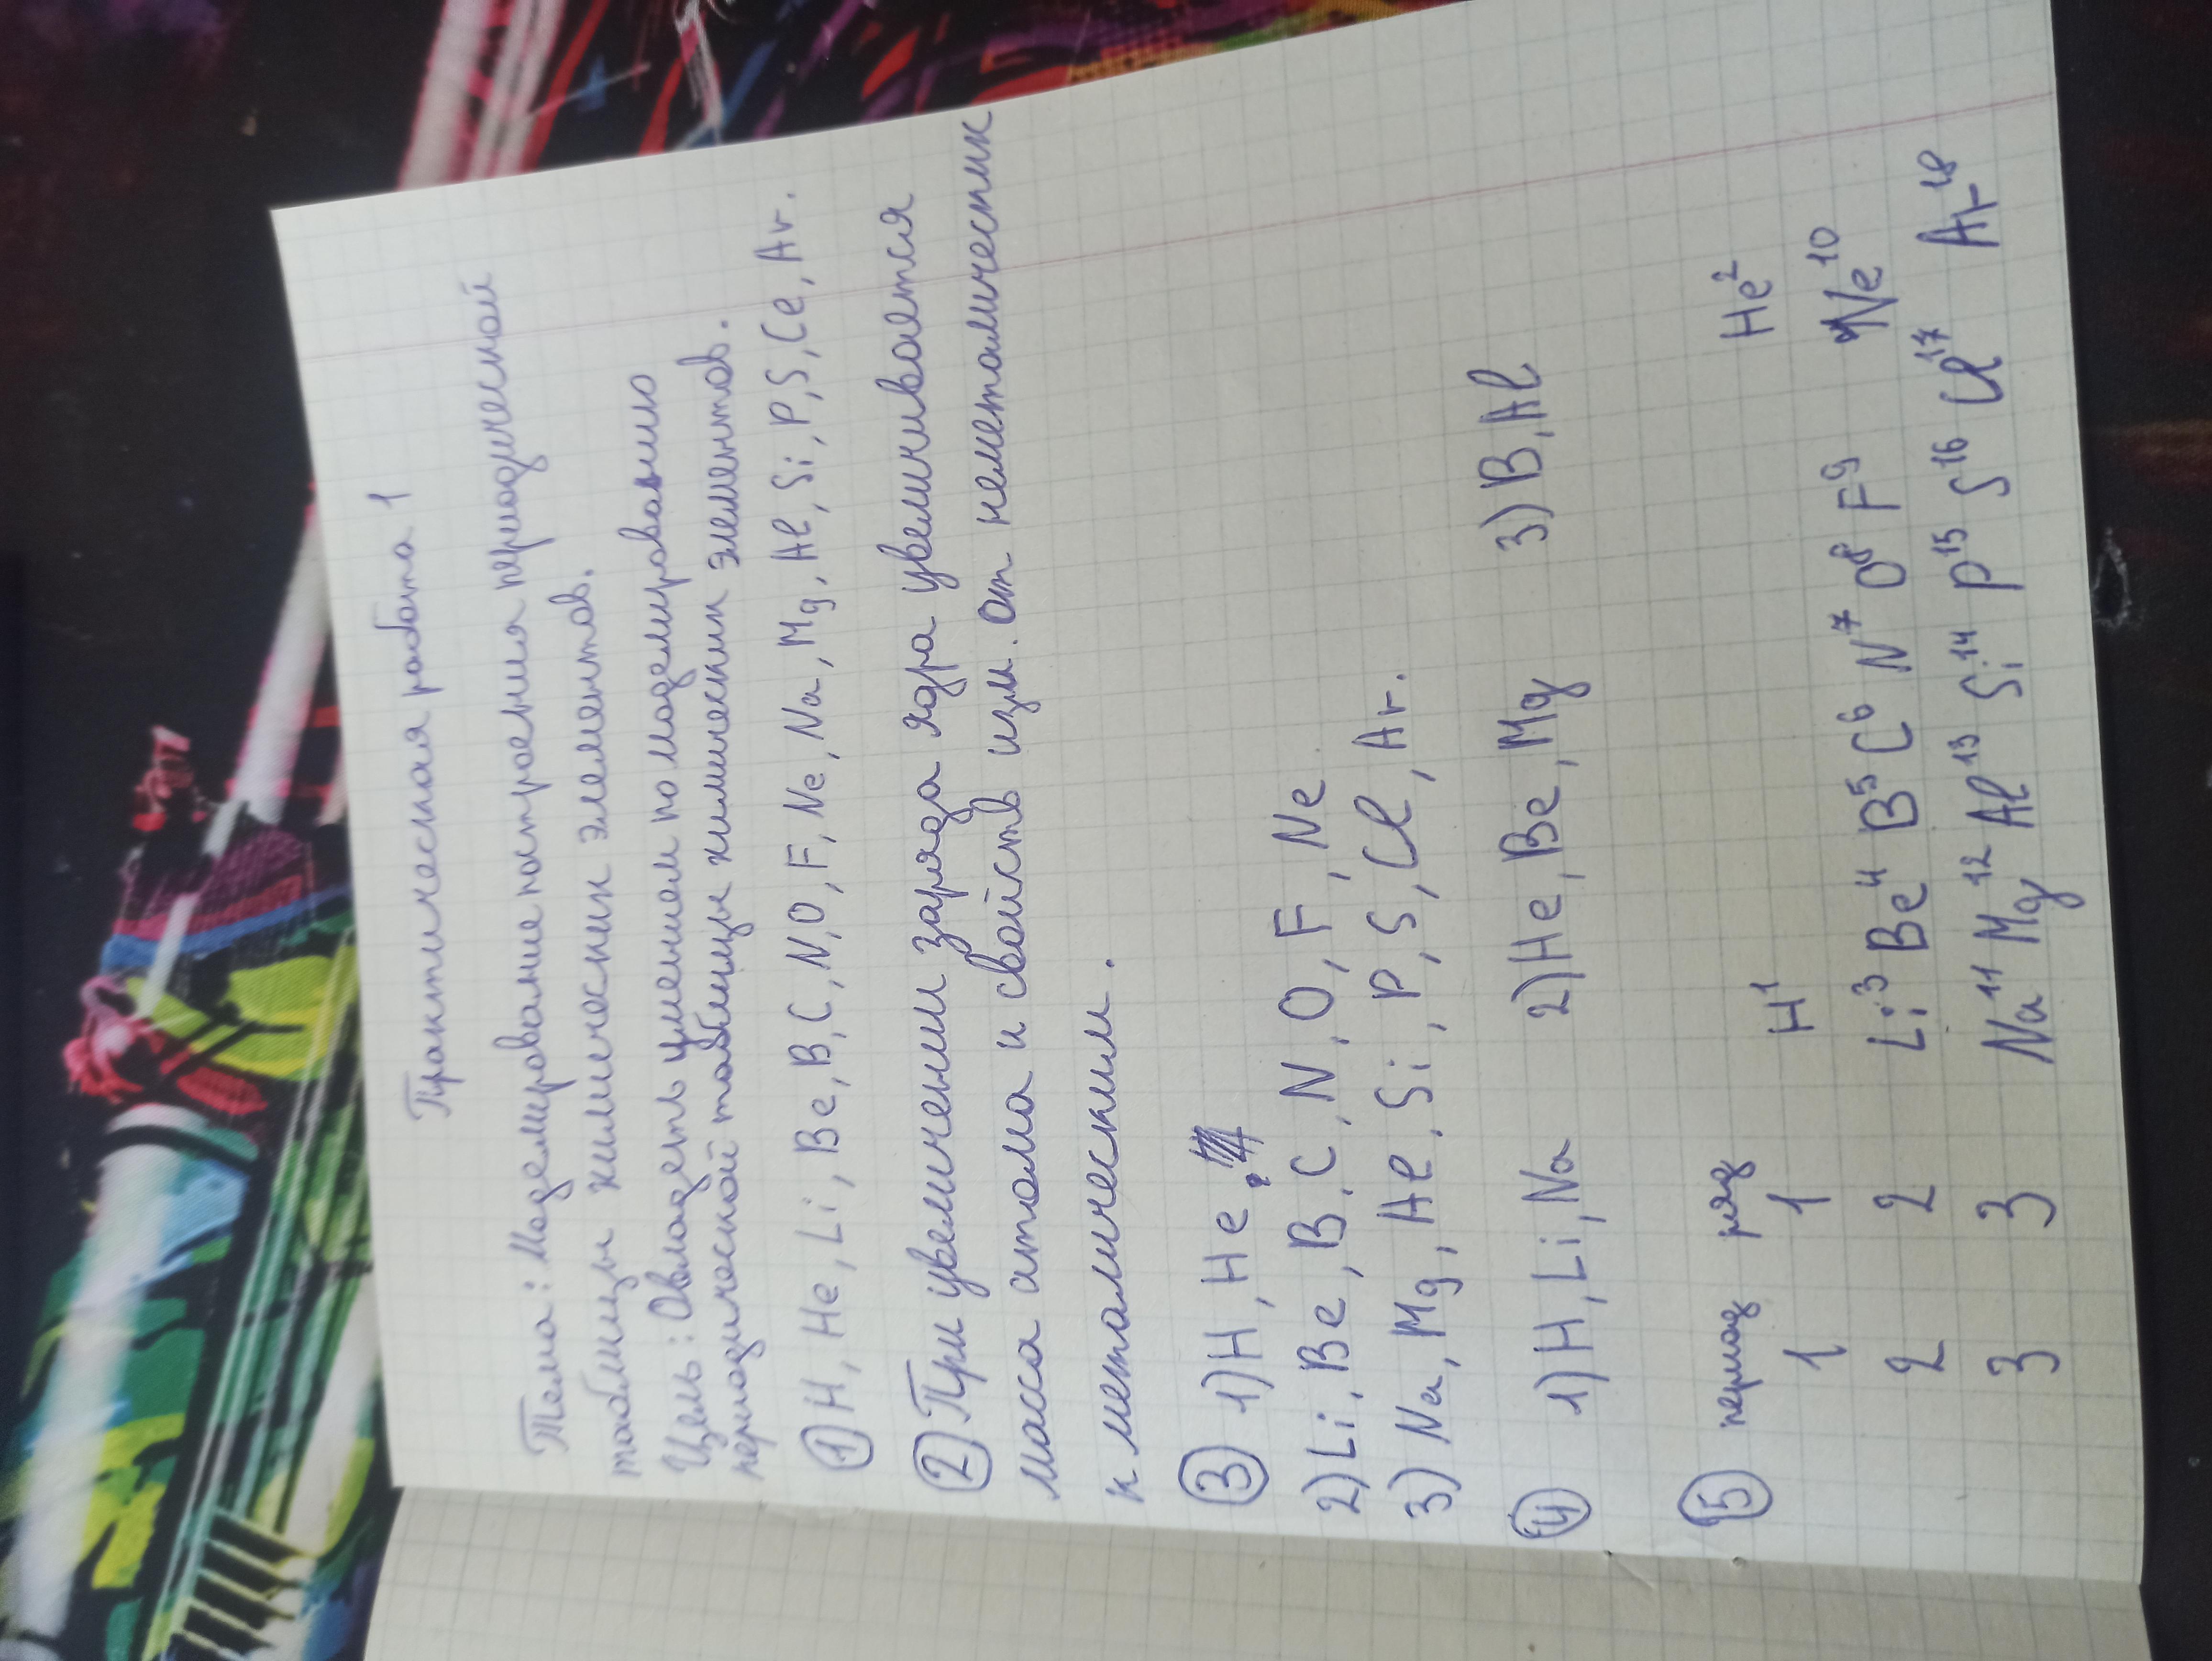 Практическая работа 1
Тема: Моделирование построения периодической
таблицы химических элементов.
Цель: Овладеть умением по моделированию
периодической таблицы химических элементов.
① H, He, Li, Be, B, C, N, O, F, Ne, Na, Mg, Al, Si, P, S, Cl, Ar.
② При увеличении заряда ядра увеличивается
масса атома и свойств изм. от неметаллических
к металлическим.
③ 1) H, He.
2) Li, Be, B, C, N, O, F, Ne
3) Na, Mg, Al, Si, P, S, Cl, Ar.
④ 1) H, Li, Na 2) He, Be, Mg 3) B, Al
⑤ период ряд He²
1 1 H¹
2 2 Li³ Be⁴ B⁵ C⁶ N⁷ O⁸ F⁹ Ne¹⁰
3 3 Na¹¹ Mg¹² Al¹³ Si¹⁴ P¹⁵ S¹⁶ Cl¹⁷ Ar¹⁸